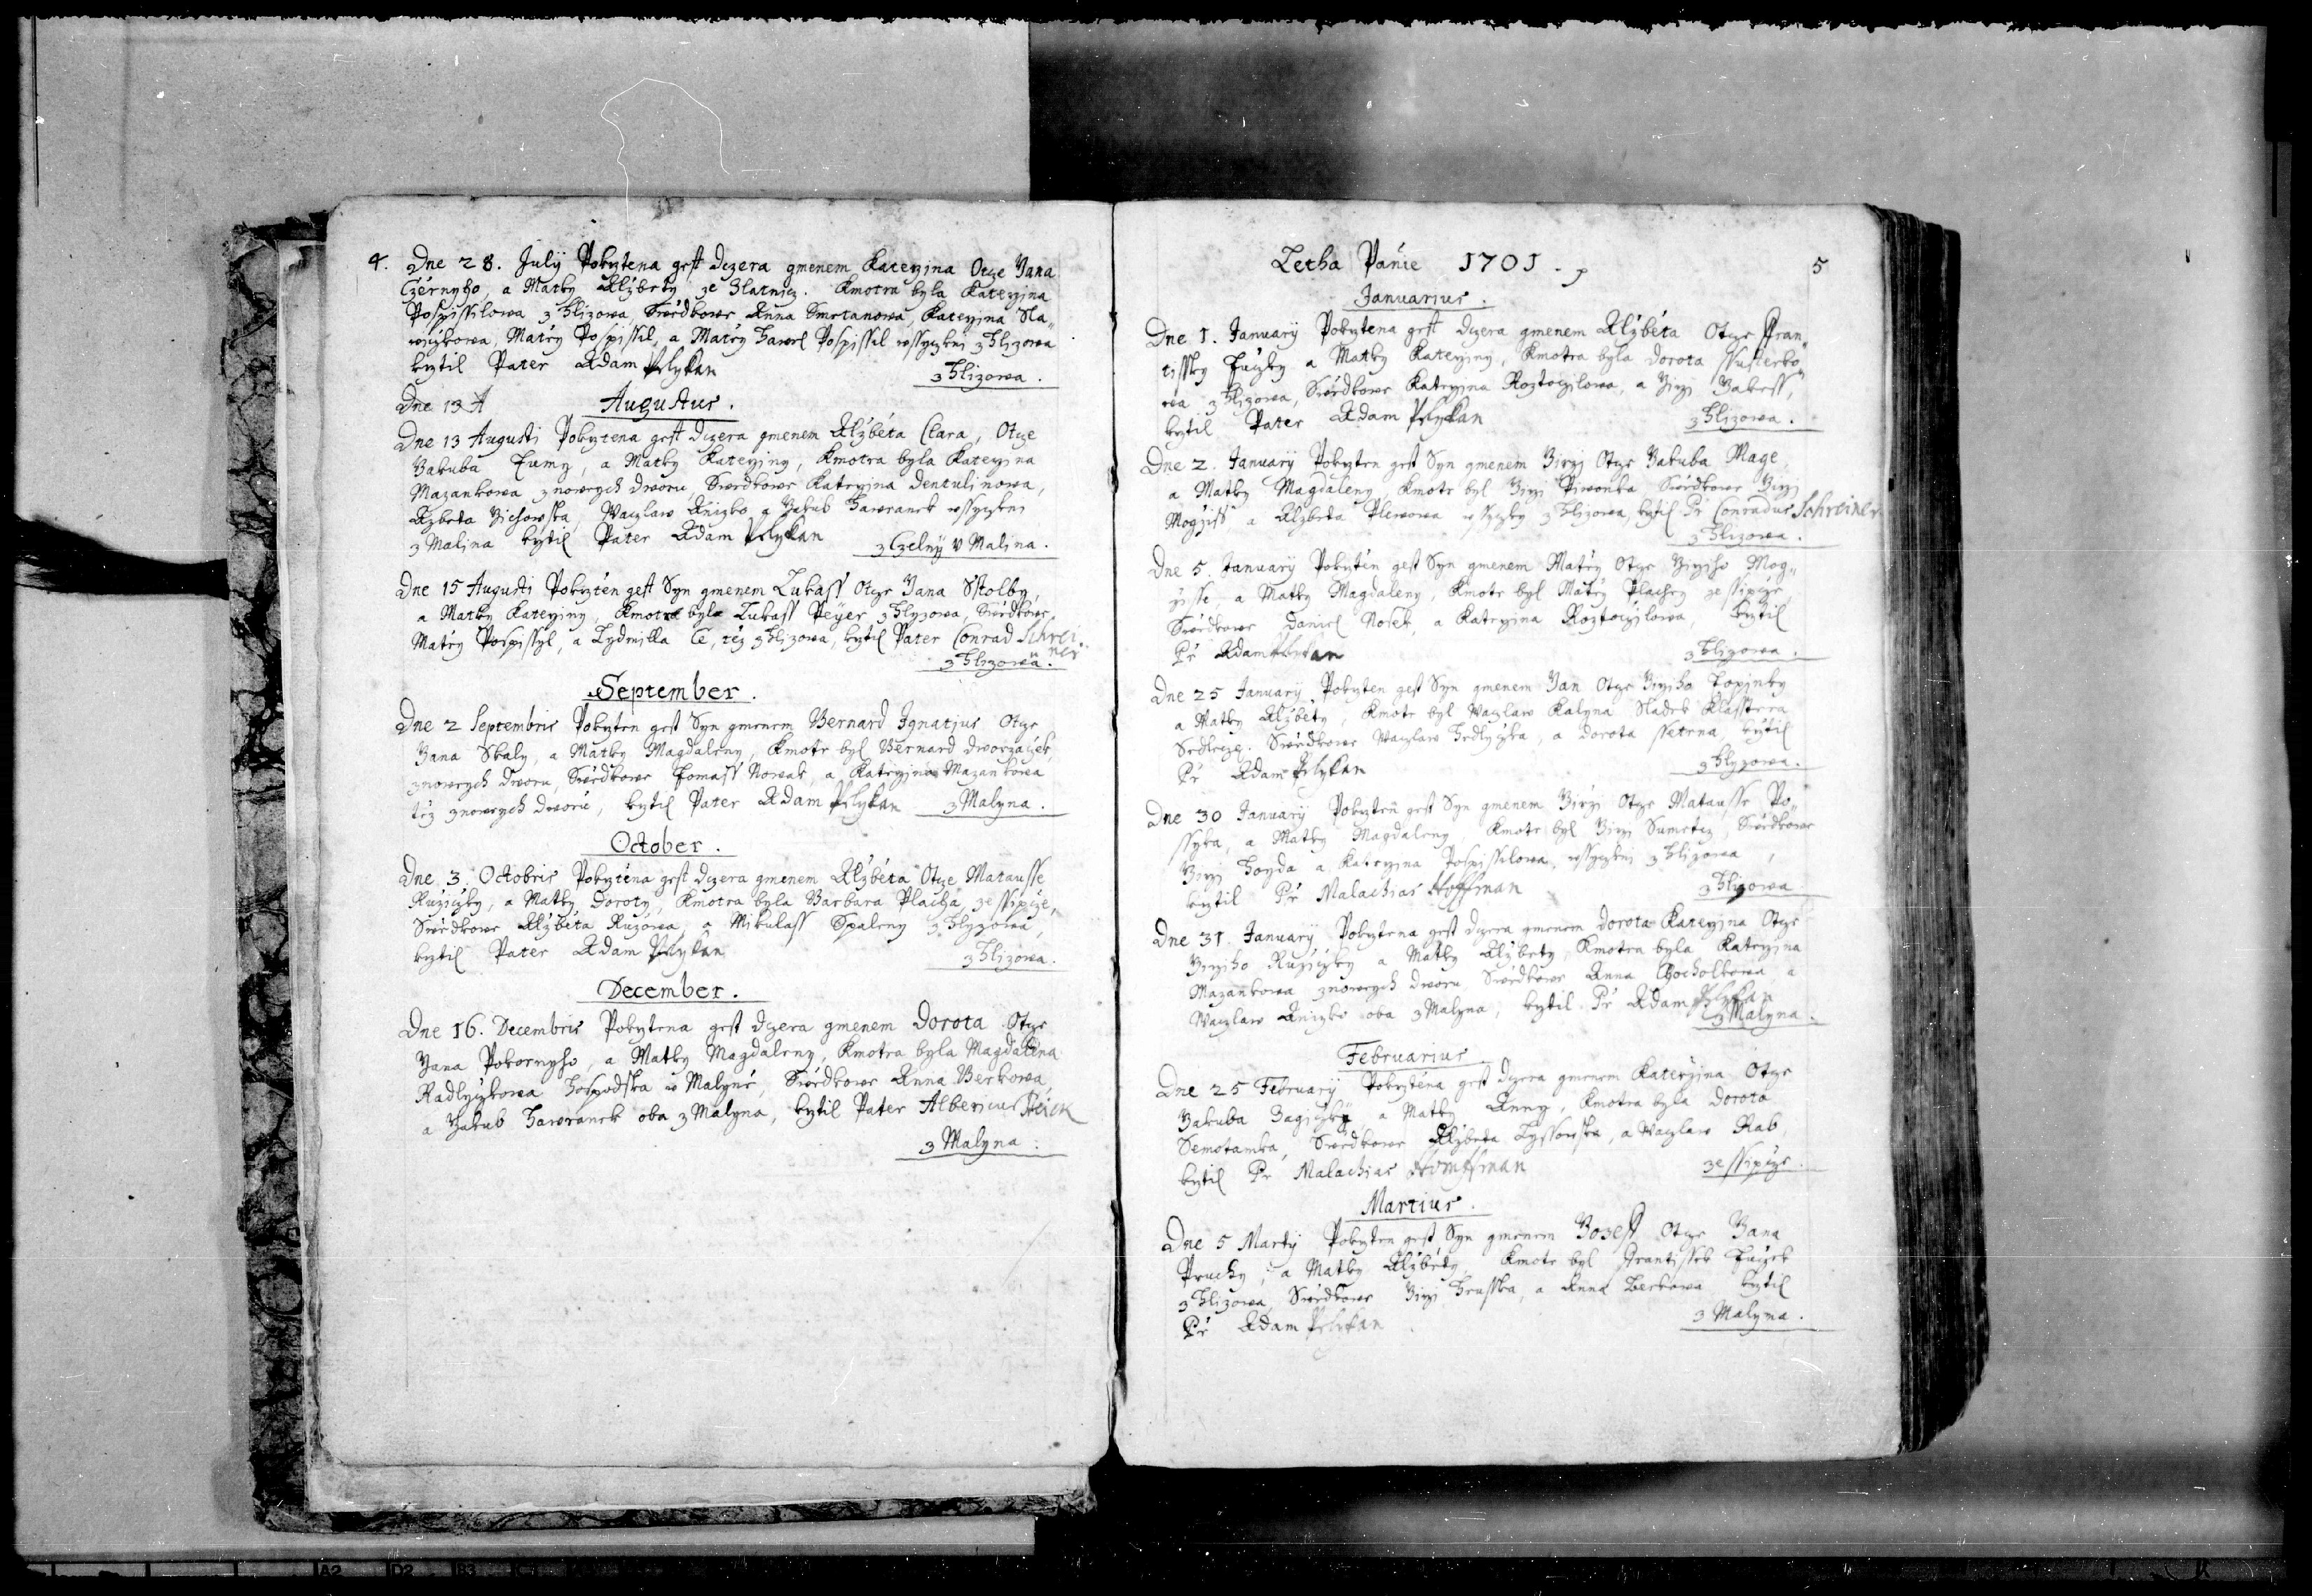 4.
Dne 28. Julÿ Pokrztena gest Dczera gmenem Katerzina Otcze Yana
Czérnyho, a Matky Alžbety ze Zlatnicz. Kmotra byla Katerzina
Pospissilowa z Hlizowa, Swědkowe Anna Smetanowa, Katerzina Sla„
wiczkowa, Matěg Pospissil, a Matěg Hawel Pospissil wssyczkni z Hlizowa
krztil Pater Adam Pelykan
z Hlizowa.
Dne 13 A
Augustus.
Dne 13 Augusti Pokrztena gest Dczera gmenem Alžběta Clara, Otcze
Yakuba Tumy, a Matky Katerziny, Kmotra byla Katerzina
Mazankowa z nowych dworu, Swedkowe Katerzina Dentulinowa,
Alžbeta Zichowska, Waczlaw Knizko, a Yakub Hawranek wssyczkni
z Malina krztil Pater Adam Pelykan
z Czelnÿ v Malina.
Dne 15 Augusti Pokrztěn gest Syn gmenem Lukass Otcze Yana Sstolby,
a Matky Katerziny, Kmotr byl Lukass Peÿer z Hlyzowa, Swědkowe
Matěg Pospissyl, a Lydmilla též z Hlizowa, krztil Pater Conrad Schrei„
ner
z Hlizowa.
September.
Dne 2 Septembris Pokrzten gest Syn gmenem Bernard Ignatius Otcze
Yana Skaly, a Matky Magdaleny, Kmotr byl Bernard Dworzaczek,
z nowych dworu, Swědkowe Tomass Nowak, a Katerzina Mazankowa
též z nowych dworu, krztil Pater Adam Pelykan
z Malyna.
October.
Dne 3 Octobris Pokrztěna gest dczera gmenem Alžběta Otcze Matausse
Růžiczky, a Matky Doroty, Kmotra byla Barbara Placha ze ssipcze,
Swědkowe Alžběta Ružowa, a Mikulass Spaleny z Hlyzowa,
krztil Pater Adam Pelykan
z Hlizowa.
December.
Dne 16. Decembris Pokrztena gest dczera gmenem Dorota Otcze
Yana Pokornyho, a Matky Magdaleny, Kmotra byla Magdalena
Radlyczkowa hospodska w Malyně, Swědkowe Anna Berkowa,
a Yakub Hawranek oba z Malyna, krztil Pater Albericus Steick
z Malyna.
Letha Panie 1701.
5
Januarius.
Dne 1. Januarÿ Pokrztena gest dczera gmenem Alžběta Otcze Fran„
tissky Tuczky a Matky Katerziny, Kmotra byla Dorota ssusterko„
wa z Hlizowa, Swědkowe Katerzina Roztoczilowa, a Yirzi Yakess,
krztil Pater Adam Pelykan
z Hlizowa.
Dne 2. Januarÿ Pokrzten gest Syn gmenem Yirzi Otcze Yakuba Mage,
a Matky Magdaleny, Kmotr byl Yirzi Piwonka Swědkowe Yirzi
Mogžiss a Alžbeta Plewowa wssyczky z Hlizowa, krztil Pr Conradus Schreiner.
z Hlizowa.
Dne 5. Januarÿ Pokrztěn gest Syn gmenem Matěg Otcze Yirziho Mog„
žisse, a Matky Magdaleny, Kmotr byl Matěg Plachy ze ssipcze,
Swědkowe Daniel Nosek, a Katerzina Roztoczilowa, krztil
Pr Adam Pelykan
z Hlizowa.
Dne 25 Januarÿ Pokrzten gest Syn gmenem Yan Otcze Yirziho Topinky
a Matky Alžběty, Kmotr byl Waczlaw Kalyna Sladek Klasstera
Sedlecze. Swědkowe Waczlaw Hrdlyczka, a Dorota krztil
Pr Adam Pelykan
z Hlyzowa.
Dne 30 Januarÿ Pokrzten gest Syn gmenem Yirzi Otcze Matausse Po„
ssyka, a Matky Magdaleny, Kmotr byl Yirzi Sumetcz, Swědkowe
Yirzi Hogda a Katerzina Pospissilowa wssyczkni z Hlizowa,
krztil Pr Malachias Hoffman
z Hlizowa
Dne 31. Januarÿ Pokrztena gest dczera gmenem Dorota Katerzina Otcze
Yirziho Ružiczky a Matky Alžbety, Kmotra byla Katerzina
Mazankowa z nowych dworu Swědkowe Anna Chocholkowa a
Waczlaw Knizko oba z Malyna, krztil Pr Adam Pelykan
z Malyna.
Februarius.
Dne 25 Februarÿ Pokrztěna gest dczera gmenem Katerzina Otcze
Yakuba Zagiczky a Matky Anny, Kmotra byla Dorota
Semotamka, Swědkowe Alžbeta Lyssowska, a Waczlaw Rab,
krztil Pr Malachias Hoffman
ze ssipcze.
Martius.
Dne 5 Martÿ Pokrzten gest Syn gmenem Yozeff Otcze Yana
Pruchy, a Matky Alžběty, Kmotr byl Frantissek Tuczek
z Hlizowa, Swědkowe Yirzi Hrusska, a Anna Berkowa krztil
Pr Adam Pelykan
z Malyna.